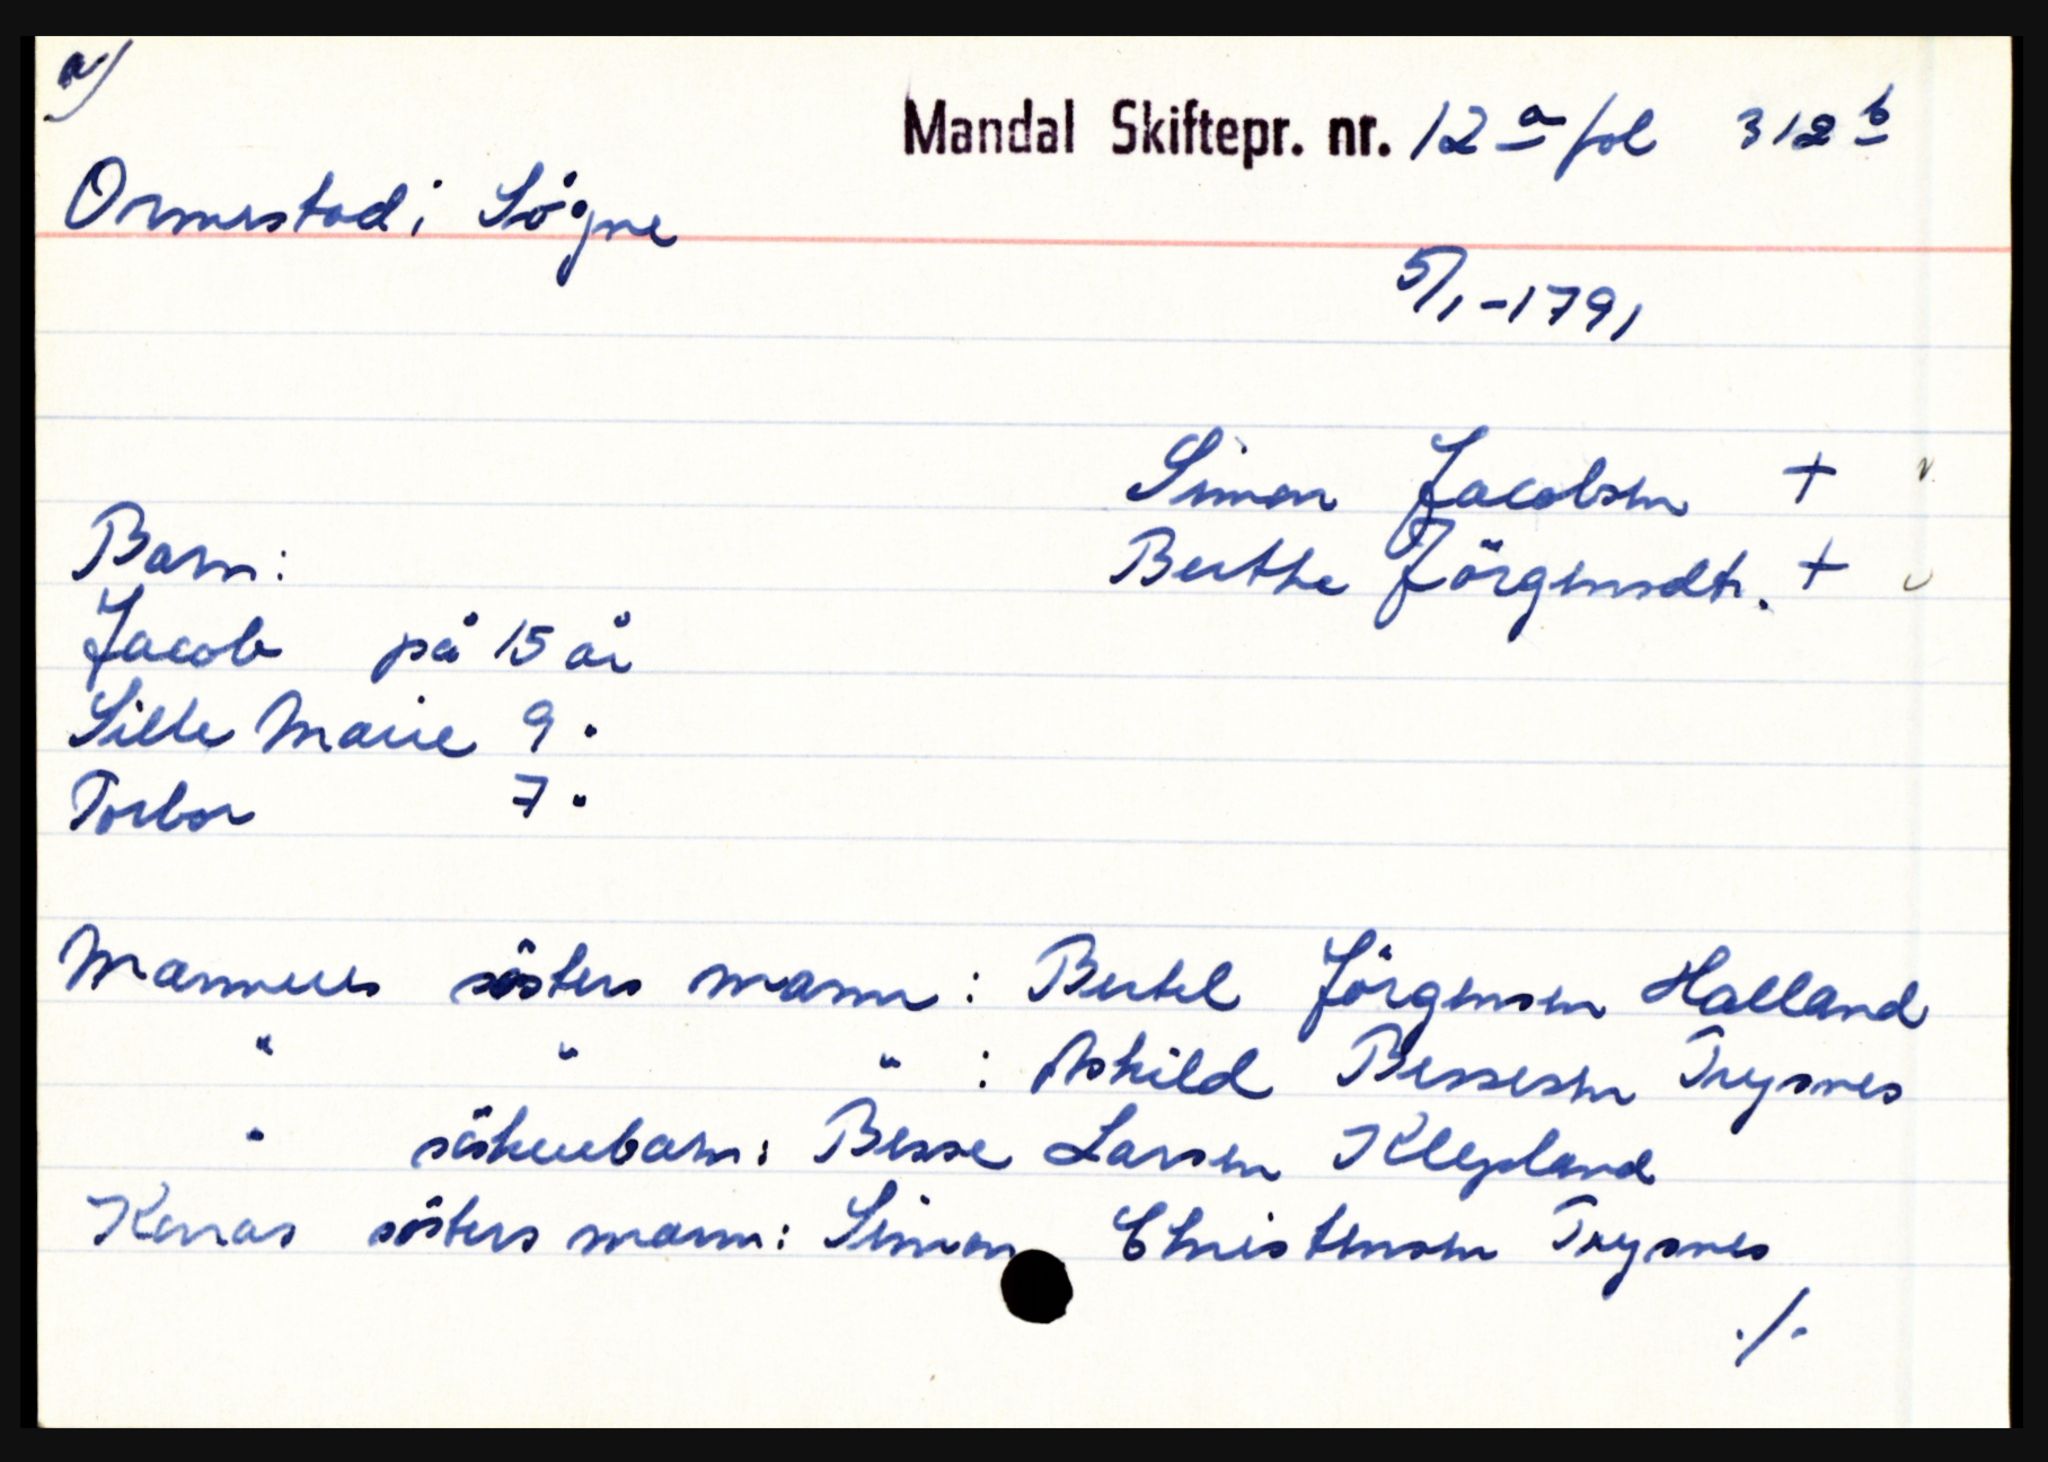 a)
Mandal Skiftepr. nr. 12 a fol 312 b
Ormestad i Søgne
5/1-1791
Simon Jacobsen +
Berthe Jörgensdtr. +
Barn:
Jacob på 15 år
Sille Marie 9 "
Torbor 7 "
Mannens sösters mann: Bertel Jörgensen Halland
" " " : Askild Bessesen Trysnes
" söskenbarn: Besse Larsen Klepland
Konas sösters mann: Simon Christensen Trysnes
./.